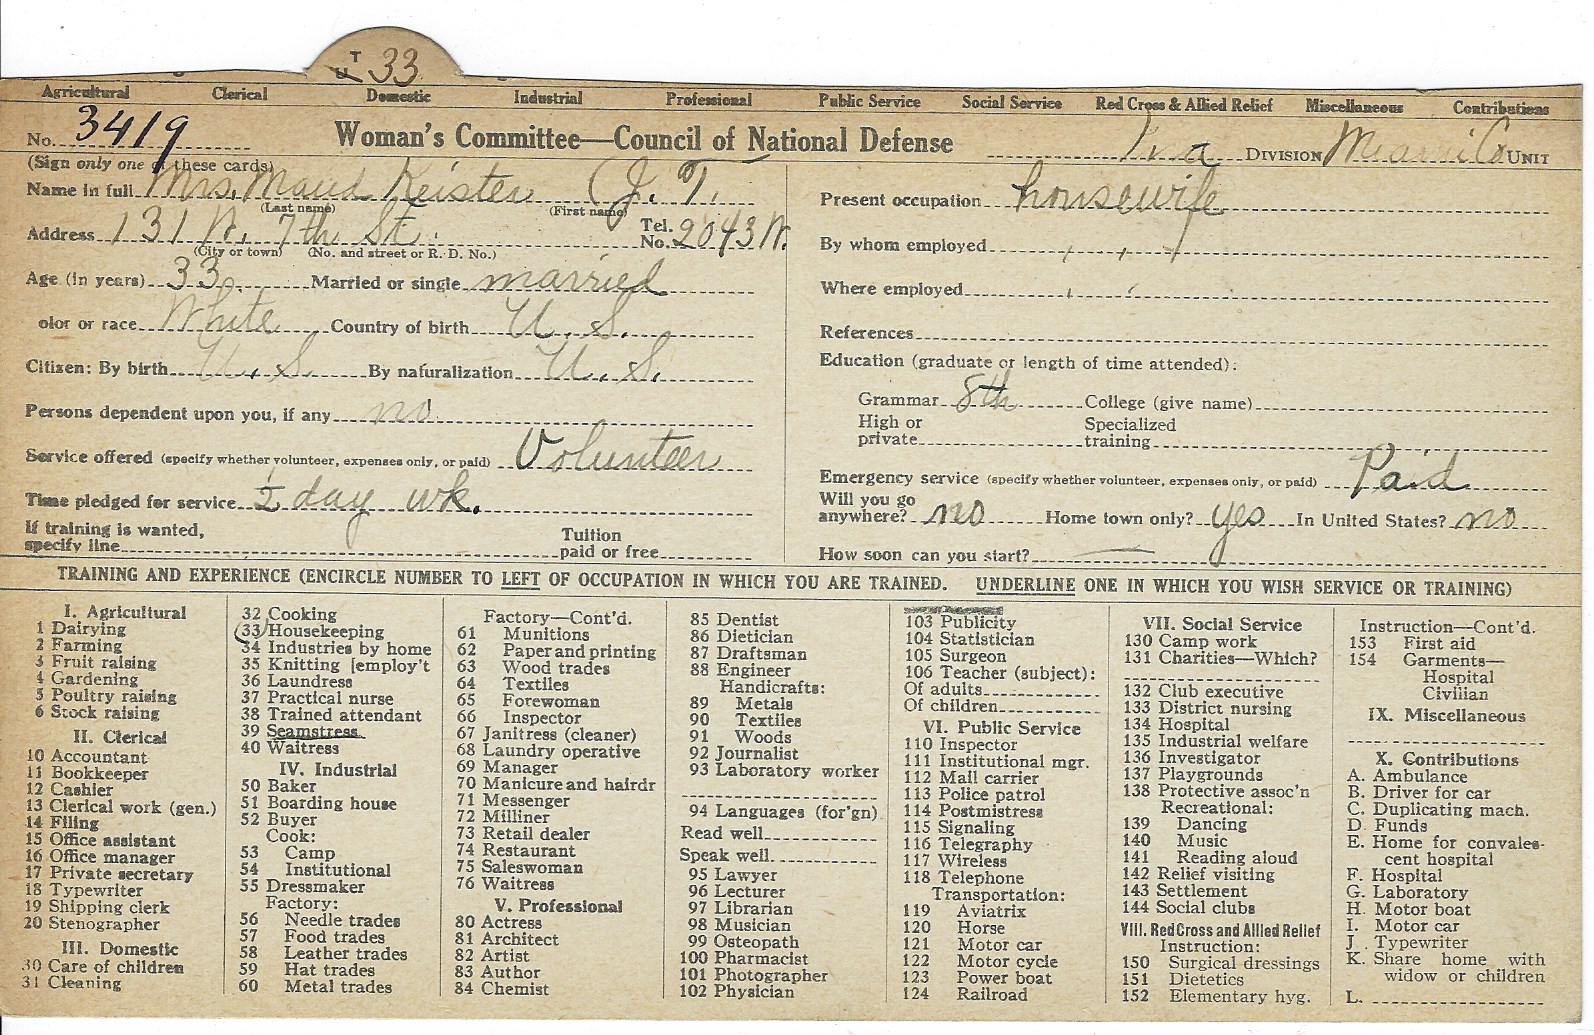 T
U 33
Agricultural Clerical Domestic Industrial Professional Public Service Social Service Red Cross & Allied Relief Miscellaneous Contributions
No. 3419 Woman's Committee—Council of National Defense DIVISION Miami Co UNIT
(Sign only one of these cards)
Name in full Mrs. Maud Keister (J. T.
(Last name) (First name)
Address 131 W. 7th St. Tel. No. 2043 W.
(City or town) (No. and street or R. D. No.)
Age (in years) 33 Married or single married
olor or race White Country of birth U. S.
Citizen: By birth U. S. By naturalization U. S.
Persons dependent upon you, if any no
Service offered (specify whether volunteer, expenses only, or paid) Volunteer
Time pledged for service ½ day wk.
If training is wanted,
specify line Tuition paid or free
Present occupation housewife
By whom employed , , ,
Where employed , ,
References
Education (graduate or length of time attended):
Grammar 8th College (give name)
High or private Specialized training
Emergency service (specify whether volunteer, expenses only, or paid) Paid
Will you go anywhere? no Home town only? yes In United States? no
How soon can you start? —
TRAINING AND EXPERIENCE (ENCIRCLE NUMBER TO LEFT OF OCCUPATION IN WHICH YOU ARE TRAINED. UNDERLINE ONE IN WHICH YOU WISH SERVICE OR TRAINING)
I. Agricultural
1 Dairying
2 Farming
3 Fruit raising
4 Gardening
5 Poultry raising
6 Stock raising
II. Clerical
10 Accountant
11 Bookkeeper
12 Cashier
13 Clerical work (gen.)
14 Filing
15 Office assistant
16 Office manager
17 Private secretary
18 Typewriter
19 Shipping clerk
20 Stenographer
III. Domestic
30 Care of children
31 Cleaning
32 Cooking
33 Housekeeping
34 Industries by home
35 Knitting [employ't
36 Laundress
37 Practical nurse
38 Trained attendant
39 Seamstress
40 Waitress
IV. Industrial
50 Baker
51 Boarding house
52 Buyer
Cook:
53 Camp
54 Institutional
55 Dressmaker
Factory:
56 Needle trades
57 Food trades
58 Leather trades
59 Hat trades
60 Metal trades
Factory—Cont'd.
61 Munitions
62 Paper and printing
63 Wood trades
64 Textiles
65 Forewoman
66 Inspector
67 Janitress (cleaner)
68 Laundry operative
69 Manager
70 Manicure and hairdr
71 Messenger
72 Milliner
73 Retail dealer
74 Restaurant
75 Saleswoman
76 Waitress
V. Professional
80 Actress
81 Architect
82 Artist
83 Author
84 Chemist
85 Dentist
86 Dietician
87 Draftsman
88 Engineer
Handicrafts:
89 Metals
90 Textiles
91 Woods
92 Journalist
93 Laboratory worker
94 Languages (for'gn)
Read well
Speak well
95 Lawyer
96 Lecturer
97 Librarian
98 Musician
99 Osteopath
100 Pharmacist
101 Photographer
102 Physician
103 Publicity
104 Statistician
105 Surgeon
106 Teacher (subject):
Of adults
Of children
VI. Public Service
110 Inspector
111 Institutional mgr.
112 Mail carrier
113 Police patrol
114 Postmistress
115 Signaling
116 Telegraphy
117 Wireless
118 Telephone
Transportation:
119 Aviatrix
120 Horse
121 Motor car
122 Motor cycle
123 Power boat
124 Railroad
VII. Social Service
130 Camp work
131 Charities—Which?
132 Club executive
133 District nursing
134 Hospital
135 Industrial welfare
136 Investigator
137 Playgrounds
138 Protective assoc'n
Recreational:
139 Dancing
140 Music
141 Reading aloud
142 Relief visiting
143 Settlement
144 Social clubs
VIII. Red Cross and Allied Relief
Instruction:
150 Surgical dressings
151 Dietetics
152 Elementary hyg.
Instruction—Cont'd.
153 First aid
154 Garments—
Hospital
Civilian
IX. Miscellaneous
X. Contributions
A. Ambulance
B. Driver for car
C. Duplicating mach.
D. Funds
E. Home for convales-
cent hospital
F. Hospital
G. Laboratory
H. Motor boat
I. Motor car
J. Typewriter
K. Share home with
widow or children
L.